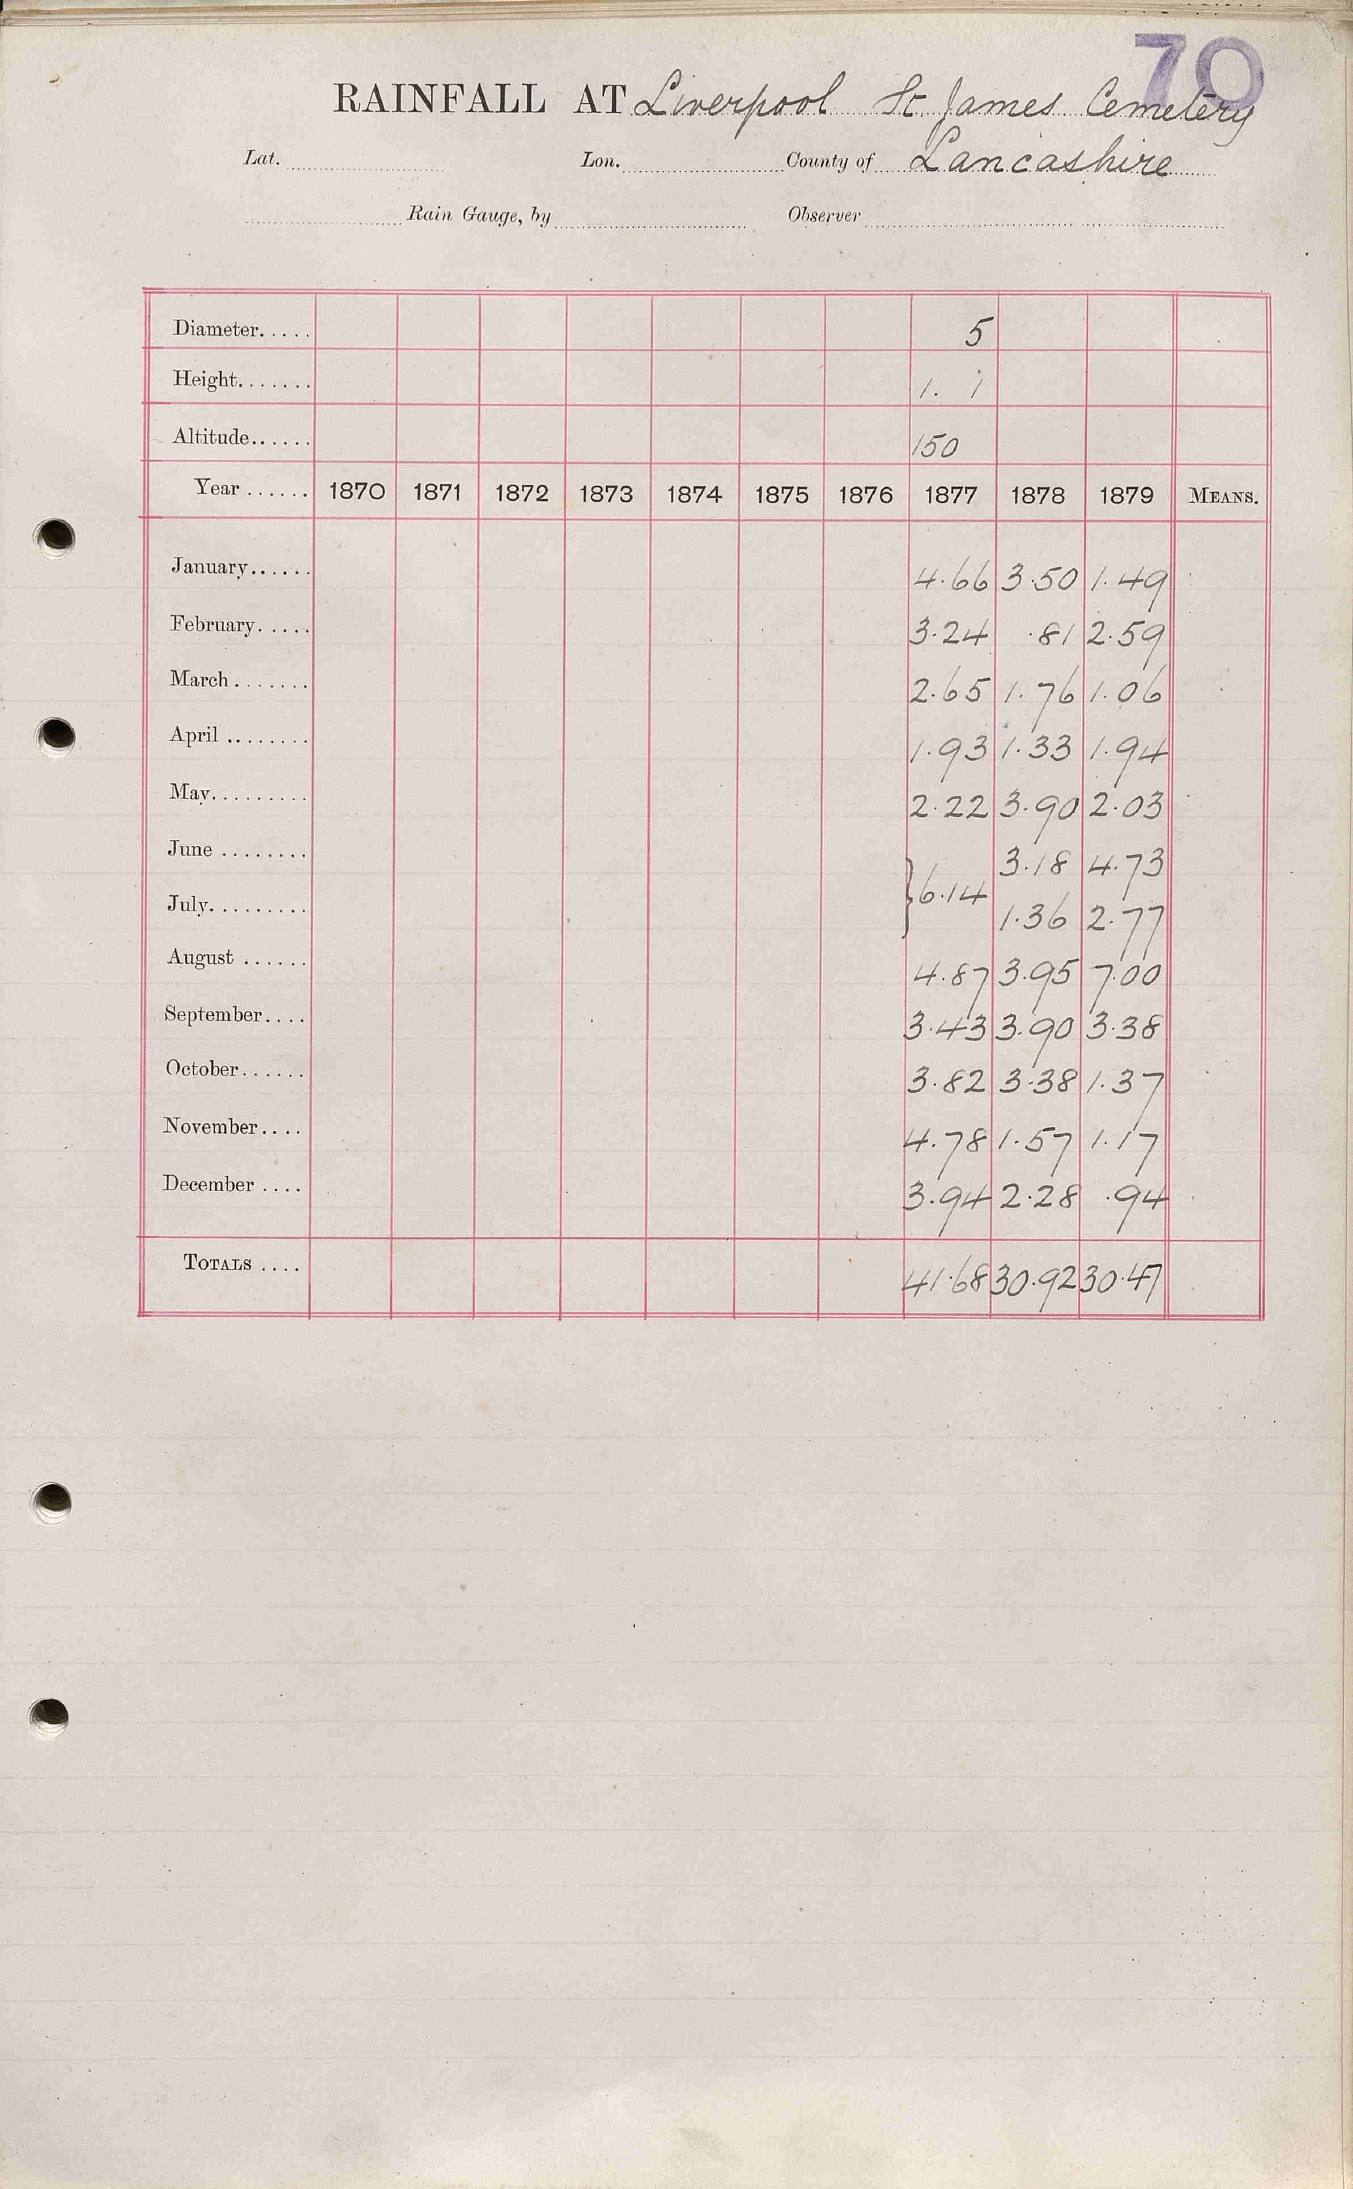 70
RAINFALL AT Liverpool St. James Cemetery
Lat. Lon. County of Lancashire
Rain Gauge, by Observer
Diameter..... 5
Height....... 1. 1
Altitude...... 150
Year ...... 1870 1871 1872 1873 1874 1875 1876 1877 1878 1879 MEANS.
January...... 4.66 3.50 1.49
February..... 3.24 .81 2.59
March ....... 2.65 1.76 1.06
April ........ 1.93 1.33 1.94
May......... 2.22 3.90 2.03
June ........ 3.18 4.73
} 6.14
July......... 1.36 2.77
August ...... 4.87 3.95 7.00
September.... 3.43 3.90 3.38
October...... 3.82 3.38 1.37
November.... 4.78 1.57 1.17
December .... 3.94 2.28 .94
TOTALS .... 41.68 30.92 30.47